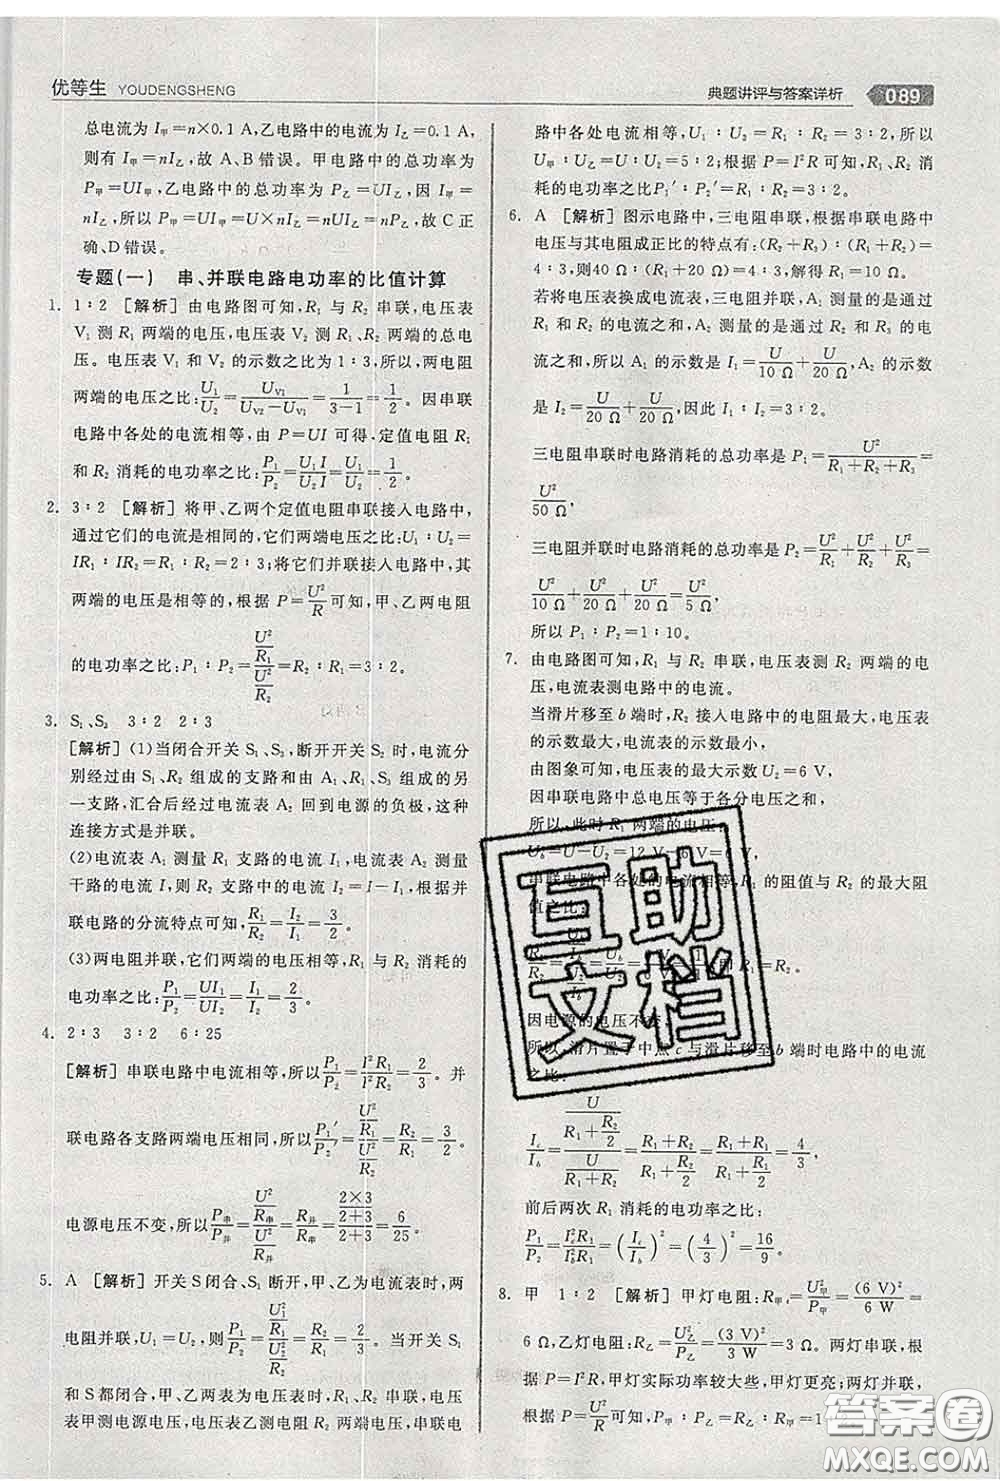 优等生 YOUDENGSHENG
典题讲评与答案详析 089
总电流为 I甲=n×0.1 A,乙电路中的总电流为 I乙=0.1 A,
则有 I甲=nI乙,故 A、B 错误。甲电路中的总功率为
P甲=UI甲,乙电路中的总功率为 P乙=UI乙,因 I甲=
nI乙,所以 P甲=UI甲=U×nI乙=nUI乙=nP乙,故 C 正
确、D 错误。
专题(一) 串、并联电路电功率的比值计算
1. 1∶2 [解析] 由电路图可知,R₁ 与 R₂ 串联,电压表
V₁ 测 R₁ 两端的电压,电压表 V₂ 测 R₁、R₂ 两端的总电
压。电压表 V₁ 和 V₂ 的示数之比为 1∶3,所以,两电阻
两端的电压之比:U₁/U₂=U_V1/(U_V2-U_V1)=1/(3-1)=1/2。因串联
电路中各处的电流相等,由 P=UI 可得,定值电阻 R₁
和 R₂ 消耗的电功率之比:P₁/P₂=U₁I/U₂I=U₁/U₂=1/2。
2. 3∶2 [解析] 将甲、乙两个定值电阻串联接入电路中,
通过它们的电流是相同的,它们两端电压之比:U₁∶U₂=
IR₁∶IR₂=R₁∶R₂=2∶3;将它们并联接入电路中,其
两端的电压是相等的,根据 P=U²/R 可知,甲、乙两电阻
的电功率之比:P₁∶P₂=(U²/R₁)/(U²/R₂)=R₂∶R₁=3∶2。
3. S₁、S₃ 3∶2 2∶3
[解析] (1)当闭合开关 S₁、S₃,断开开关 S₂ 时,电流分
别经过由 S₁、R₂ 组成的支路和由 A₁、R₁、S₃ 组成的另
一支路,汇合后经过电流表 A₂ 回到电源的负极,这种
连接方式是并联。
(2)电流表 A₁ 测量 R₁ 支路的电流 I₁,电流表 A₂ 测量
干路的电流 I,则 R₂ 支路中的电流 I₂=I-I₁,根据并
联电路的分流特点可知,R₁/R₂=I₂/I₁=3/2。
(3)两电阻并联,它们两端的电压相等,R₁ 与 R₂ 消耗的
电功率之比:P₁/P₂=UI₁/UI₂=I₁/I₂=2/3。
4. 2∶3 3∶2 6∶25
[解析] 串联电路中电流相等,所以 P₁/P₂=I²R₁/I²R₂=2/3。并
联电路各支路两端电压相同,所以 P₁′/P₂′=(U²/R₁)/(U²/R₂)=R₂/R₁=3/2。
电源电压不变,所以 P串/P并=(U²/R串)/(U²/R并)=R并/R串=((2×3)/(2+3))/(2+3)=6/25。
5. A [解析] 开关 S 闭合、S₁ 断开,甲、乙为电流表时,两
电阻并联,U₁=U₂,则 P₁/P₂=(U₁²/R₁)/(U₂²/R₂)=R₂/R₁=2/3。当开关 S₁
和 S 都闭合,甲、乙两表为电压表时,两电阻串联,电压
表甲测电源电压,电压表乙测定值电阻 R₂ 两端电压,串联电
路中各处电流相等,U₁∶U₂=R₁∶R₂=3∶2,所以
U甲∶U乙=U∶U₂=5∶2;根据 P=I²R 可知,R₁、R₂ 消
耗的电功率之比P₁′∶P₂′=R₁∶R₂=3∶2。
6. A [解析] 图示电路中,三电阻串联,根据串联电路中
电压与其电阻成正比的特点有:(R₂+R₃)∶(R₁+R₂)=
4∶3,则40 Ω∶(R₁+20 Ω)=4∶3,解得 R₁=10 Ω。
若将电压表换成电流表,三电阻并联,A₁ 测量的是通过
R₁ 和 R₂ 的电流之和,A₂ 测量的是通过 R₂ 和 R₃ 的电
流之和,所以 A₁ 的示数是 I₁=U/10 Ω+U/20 Ω,A₂ 的示数
是 I₂=U/20 Ω+U/20 Ω,因此 I₁∶I₂=3∶2。
三电阻串联时电路消耗的总功率是 P₁=U²/(R₁+R₂+R₃)=
U²/50 Ω。
三电阻并联时电路消耗的总功率是 P₂=U²/R₁+U²/R₂+U²/R₃=
U²/10 Ω+U²/20 Ω+U²/20 Ω=U²/5 Ω,
所以 P₁∶P₂=1∶10。
7. 由电路图可知,R₁ 与 R₂ 串联,电压表测 R₂ 两端的电
压,电流表测电路中的电流。
当滑片移至 b 端时,R₂ 接入电路中的电阻最大,电压表
的示数最大,电流表的示数最小,
由图象可知,电压表的最大示数 U₂=6 V,
因串联电路中总电压等于各分电压之和,
所以,此时 R₁ 两端的电压:
U_b=U-U₂=12 V-6 V=6 V,
串联电路中各处的电流相等,R₁ 的阻值与 R₂ 的最大阻
值之比:
因电源的电压不变,
所以,滑片置于中点 c 与滑片移至 b 端时电路中的电流
之比:
I_c/I_b=(U/(R₁+R₂/2))/(U/(R₁+R₂))=(R₁+R₂)/(R₁+R₂/2)=(R₁+R₁)/(R₁+R₁/2)=4/3,
前后两次 R₁ 消耗的电功率之比:
P₁/P₂=I_c²R₁/I_b²R₁=(I_c/I_b)²=(4/3)²=16/9。
8. 甲 1∶2 [解析] 甲灯电阻:R甲=U甲²/P甲=(6 V)²/6 W=
6 Ω,乙灯电阻:R乙=U乙²/P乙=(3 V)²/3 W=3 Ω。两灯串联,根
据 P=I²R,甲灯实际功率较大些,甲灯更亮;两灯并联,
根据 P=U²/R可知,P甲∶P乙=R乙∶R甲=1∶2。
互助文档
答案圈
MXQE.COM